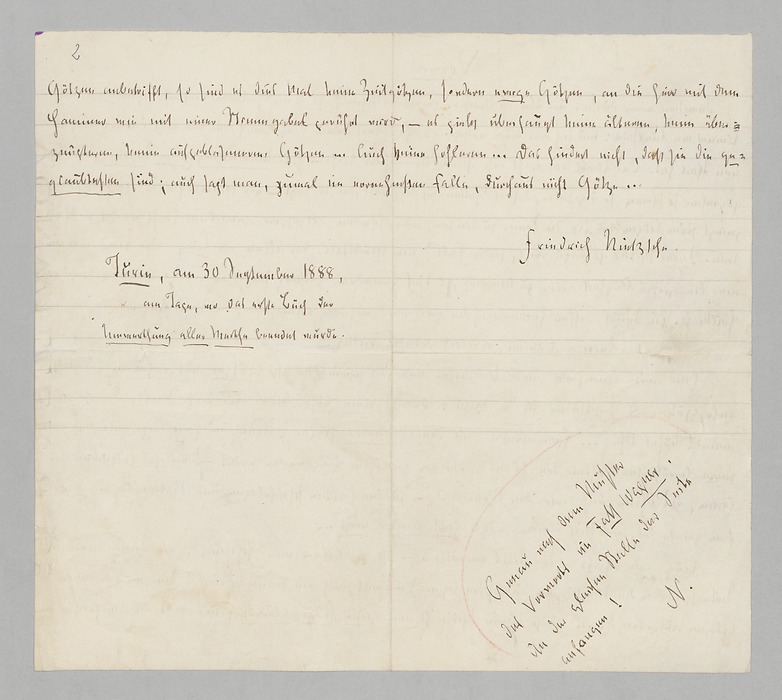 2
Götzen anbetrifft, so sind es dies Mal keine Zeitgötzen, sondern ewige Götzen, an die hier mit dem
Hammer wie mit einer Stimmgabel gerührt wird, — es giebt überhaupt keine älteren, keine über=
zeugteren, keine aufgeblaseneren Götzen ... Auch keine hohleren ... Das hindert nicht, daß sie die ge=
glaubtesten sind; auch sagt man, zumal im vornehmsten Falle, durchaus nicht Götze ...
Friedrich Nietzsche.
Turin, am 30 September 1888,
am Tage, wo das erste Buch der
Umwerthung aller Werthe beendet wurde.
Genau nach dem Muster
des Vorworts im Fall Wagner!
An der gleichen Stelle der Seite
anfangen!
N.